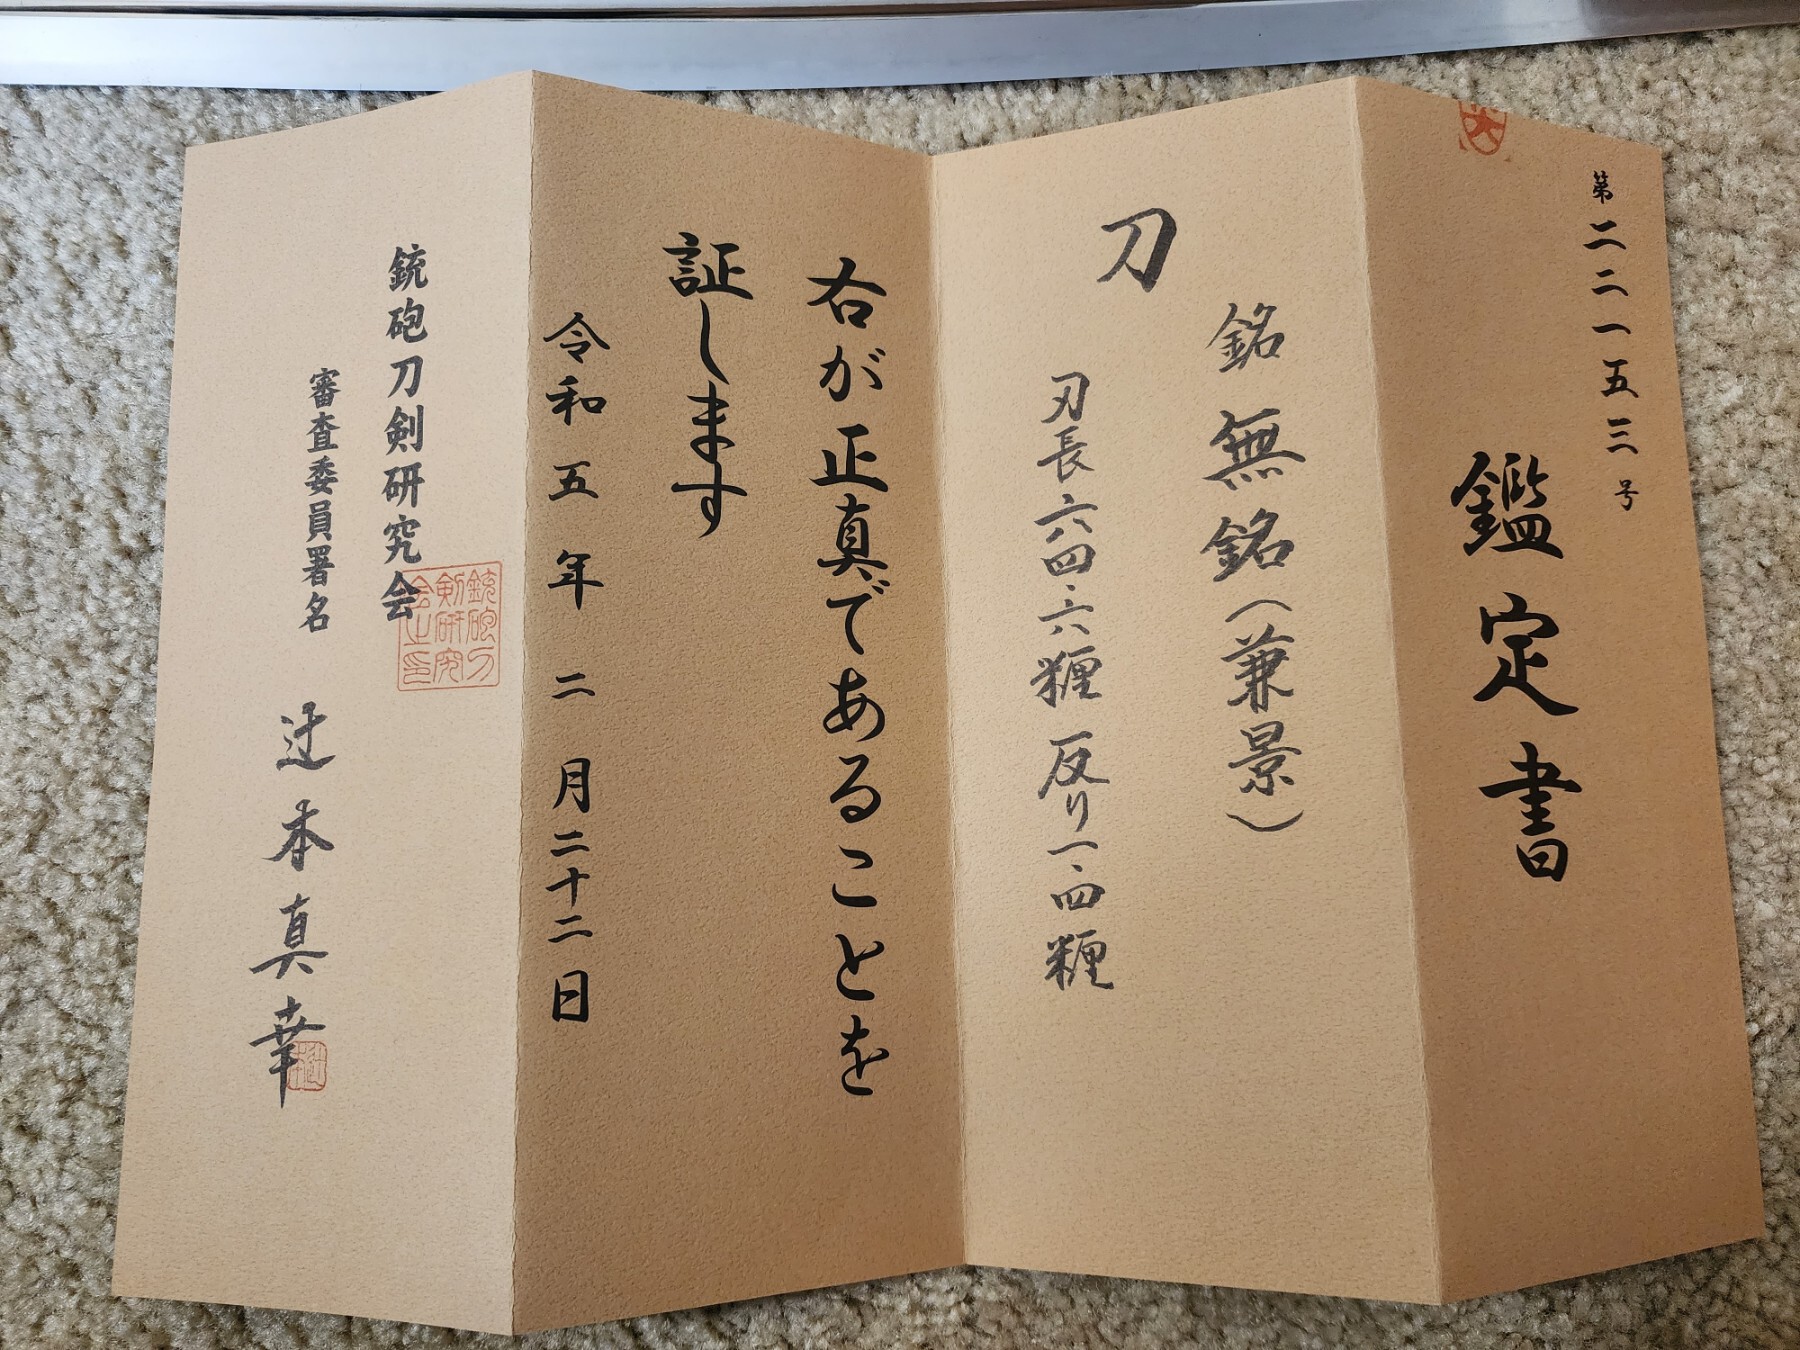 第二二一五三号
鑑定書
銘 無銘（兼景）
刀
刃長 六四・六糎 反り 一・四糎
右が正真であることを
証します
令和五年二月二十二日
銃砲刀剣研究会
審査委員署名 辻本真幸
銃砲刀
剣研究
会之印